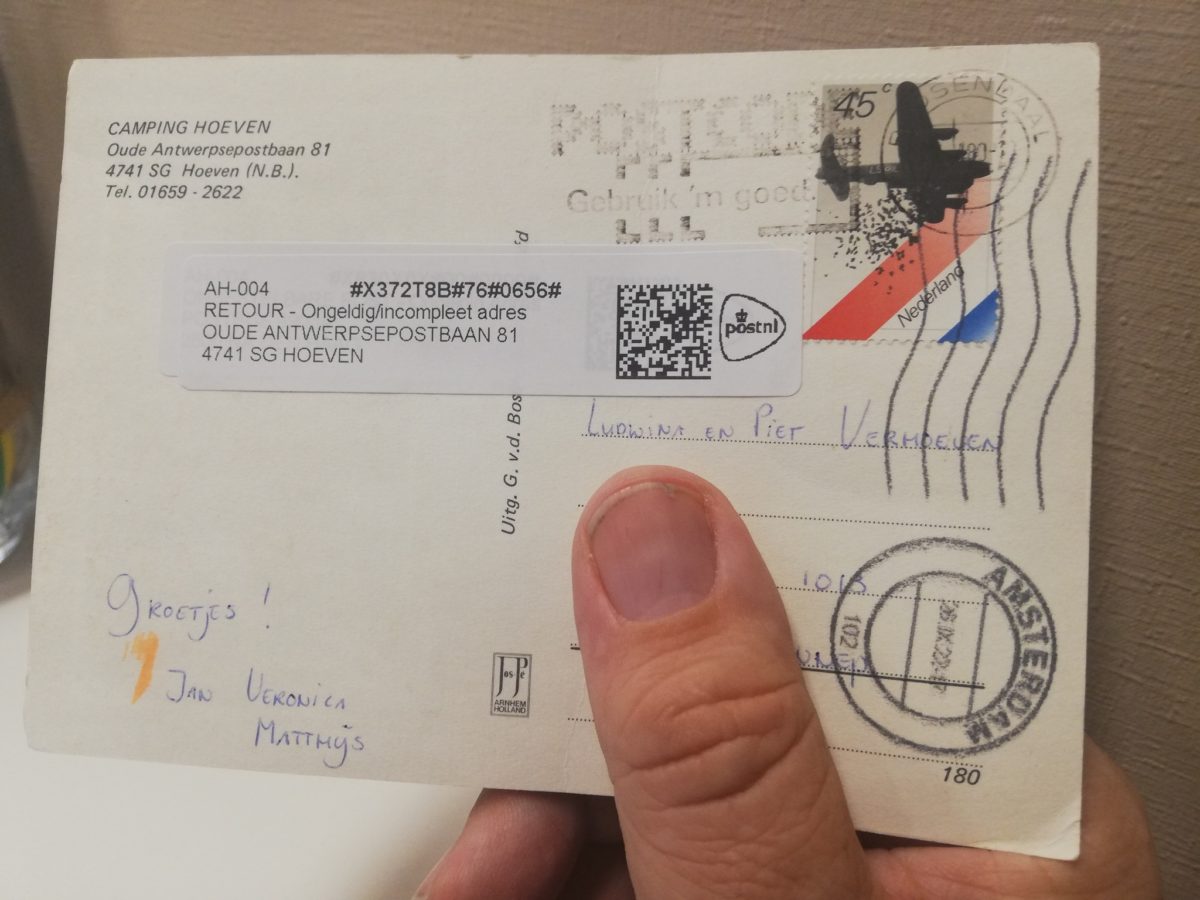 CAMPING HOEVEN
Oude Antwerpsepostbaan 81
4741 SG Hoeven (N.B.).
Tel. 01659 - 2622
POSTCODE
Gebruik 'm goed.
45 c
Nederland
AH-004 #X372T8B#76#0656#
RETOUR - Ongeldig/incompleet adres
OUDE ANTWERPSEPOSTBAAN 81
4741 SG HOEVEN
postnl
Uitg. G. v.d. Bos
Ludwina en Piet Vermoeven
1013
Groetjes!
Jan Veronica
Matthijs
Jos-Pé
ARNHEM
HOLLAND
AMSTERDAM
102
180